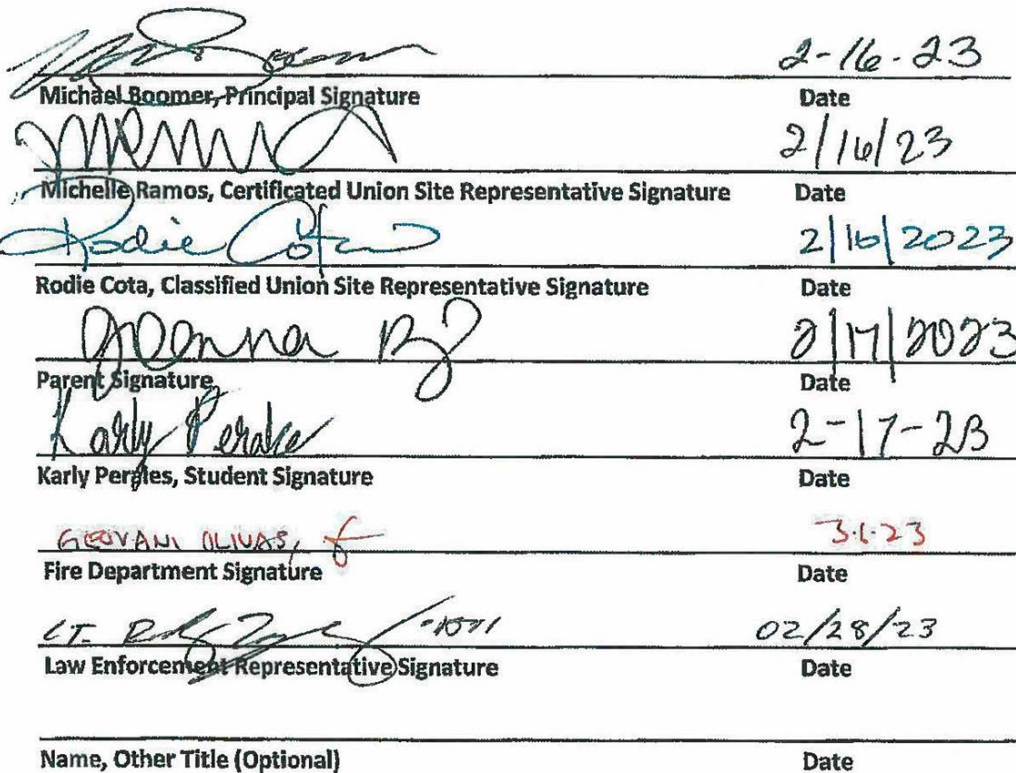 2-16-23
Michael Boomer, Principal Signature Date
2/16/23
Michelle Ramos, Certificated Union Site Representative Signature Date
Rodie Cota 2/16/2023
Rodie Cota, Classified Union Site Representative Signature Date
2/17/2023
Parent Signature Date
Karly Perales 2-17-23
Karly Perales, Student Signature Date
GEOVANI OLIVAS, 3.1.23
Fire Department Signature Date
LT. 02/28/23
Law Enforcement Representative Signature Date
Name, Other Title (Optional) Date